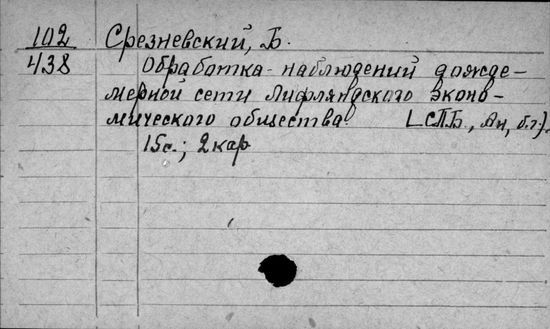 102
438
Срезневский, Б.
Обработка наблюдений дожде-
мерной сети Лифляндского эконо-
мического общества [СПБ., Ан, б.г.]
15с.; 2 кар